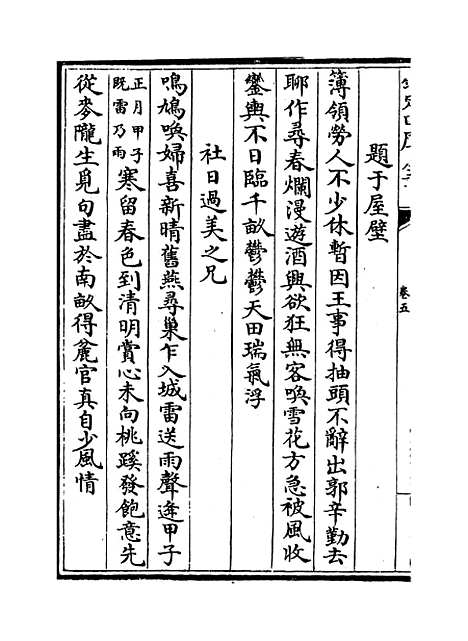 題于屋壁
簿領勞人不少休暫因王事得抽頭不辭出郭辛勤去
聊作尋春爛漫遊酒興欲狂無客喚雪花方急被風收
鑾輿不日臨千畝鬱鬱天田瑞氣浮
社日過美之兄
鳴鳩喚婦喜新晴舊燕尋巢乍入城雷送雨聲逢甲子
正月甲子
既雷乃雨
寒留春色到清明賞心未向桃蹊發飽意先
從麥隴生覓句盡於南畝得麄官真自少風情
卷五